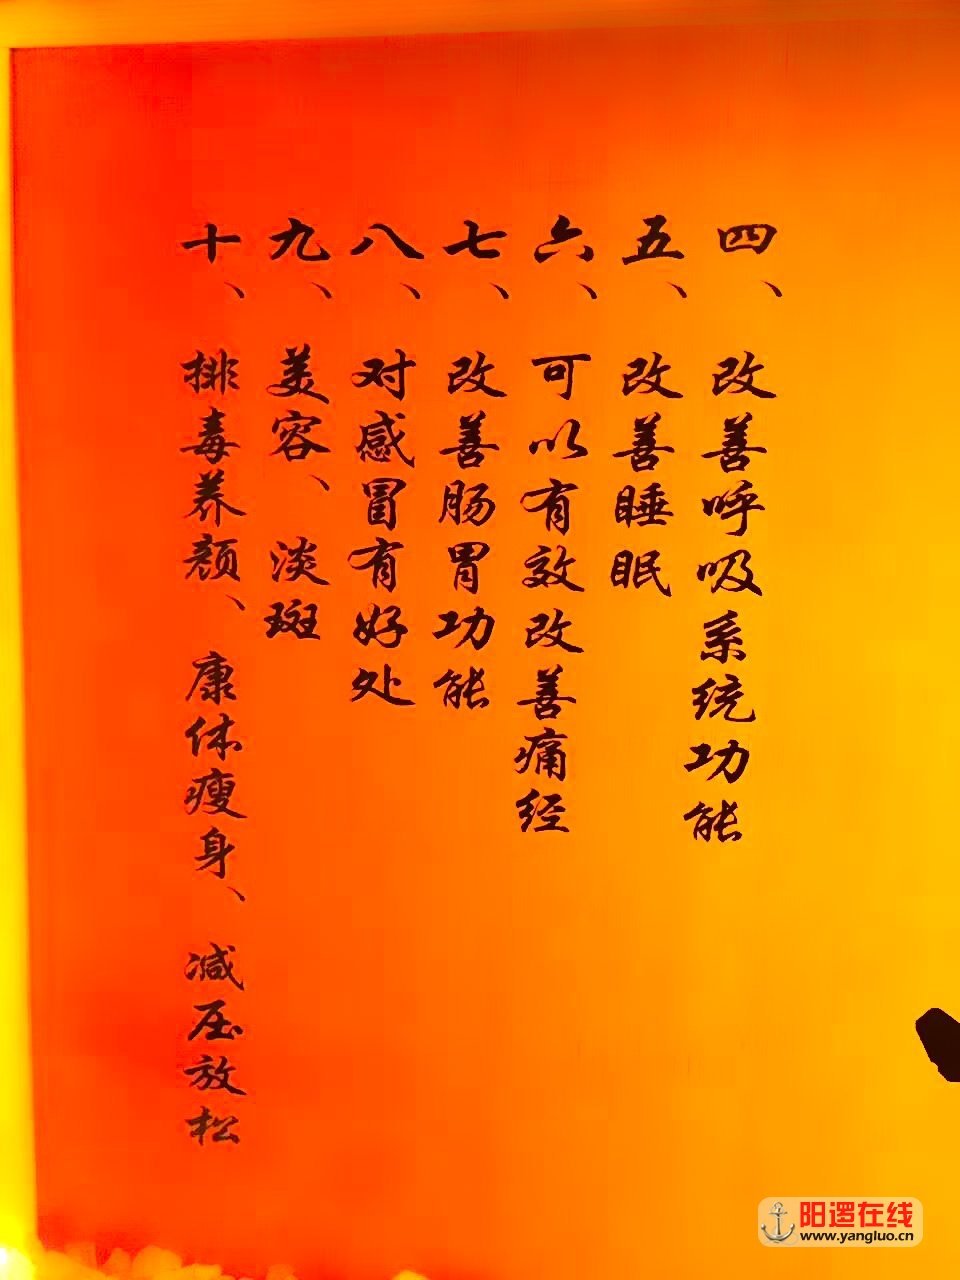 四、改善呼吸系统功能
五、改善睡眠
六、可以有效改善痛经
七、改善肠胃功能
八、对感冒有好处
九、美容、淡斑
十、排毒养颜、康体瘦身、减压放松
阳逻在线
www.yangluo.cn